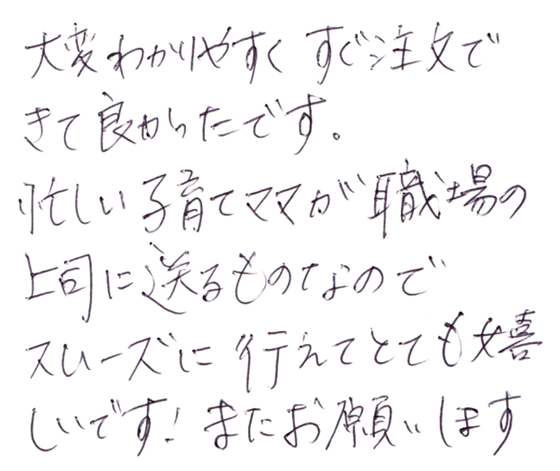 大変わかりやすく すぐ注文で
きて良かったです。
忙しい子育てママが職場の
上司に送るものなので
スムーズに行えてとても嬉
しいです！またお願いします